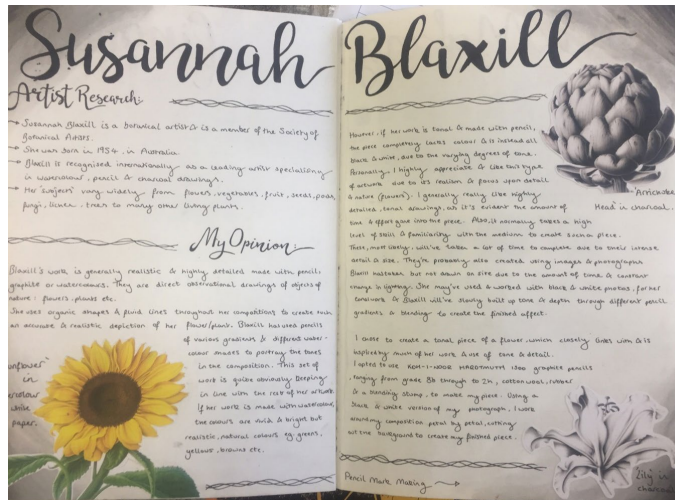 Susannah Blaxill
Artist Research:
→ Susannah Blaxill is a botanical artist & is a member of the Society of
Botanical Artists.
→ She was born in 1954, in Australia.
→ Blaxill is recognised internationally as a leading artist specialising
in watercolour, pencil & charcoal drawings.
→ Her 'subjects' vary widely, from flowers, vegetables, fruit, seeds, pods,
fungi, lichen, trees to many other living plants.
My Opinion:
Blaxill's work is generally realistic & highly detailed made with pencil,
graphite or watercolours. They are direct observational drawings of objects of
nature: flowers, plants etc.
She uses organic shapes & fluid lines throughout her compositions to create such
an accurate & realistic depiction of her flower/plant. Blaxill has used pencils
of various gradients & different water-
colour shades to portray the tones
in the composition. This set of
work is quite obviously keeping
in line with the rest of her artwork
If her work is made with watercolour,
the colours are vivid & bright but
realistic, natural colours eg greens,
yellows, browns etc.
sunflower'
in
watercolour
white
paper.
However, if her work is tonal & made with pencil,
the piece completely lacks colour & is instead all
black & white, due to the varying degrees of tone.
Personally, I highly appreciate & like this type
of artwork due to its realism & focus upon detail
& nature (flowers). I generally really like highly
detailed, tonal drawings, as it's evident the amount of
time & effort gone into the piece. Also, it normally takes a high
level of skill & familiarity with the mediums to create such a piece.
These, most likely, will've taken a lot of time to complete due to their intense
detail & size. They're probably also created using images & photographs
Blaxill has taken but not drawn on site due to the amount of time & constant
change in lighting. She may've used & worked with black & white photos, for her
tonal work & Blaxill will've slowly built up tone & depth through different pencil
gradients & blending to create the finished effect.
I chose to create a tonal piece of a flower, which closely links with & is
inspired by much of her work & use of tone & detail.
I opted to use KOH-I-NOOR HARDTMUTH 1500 graphite pencils
, ranging from grade 8b through to 2h, cotton wool, rubber
& a blending stump, to make my piece. Using a
black & white version of my photograph, I work
around my composition petal by petal, cutting
out the background to create my finished piece.
Pencil Mark Making →
'Artichoke
Head' in charcoal.
'Lily' in
charcoal